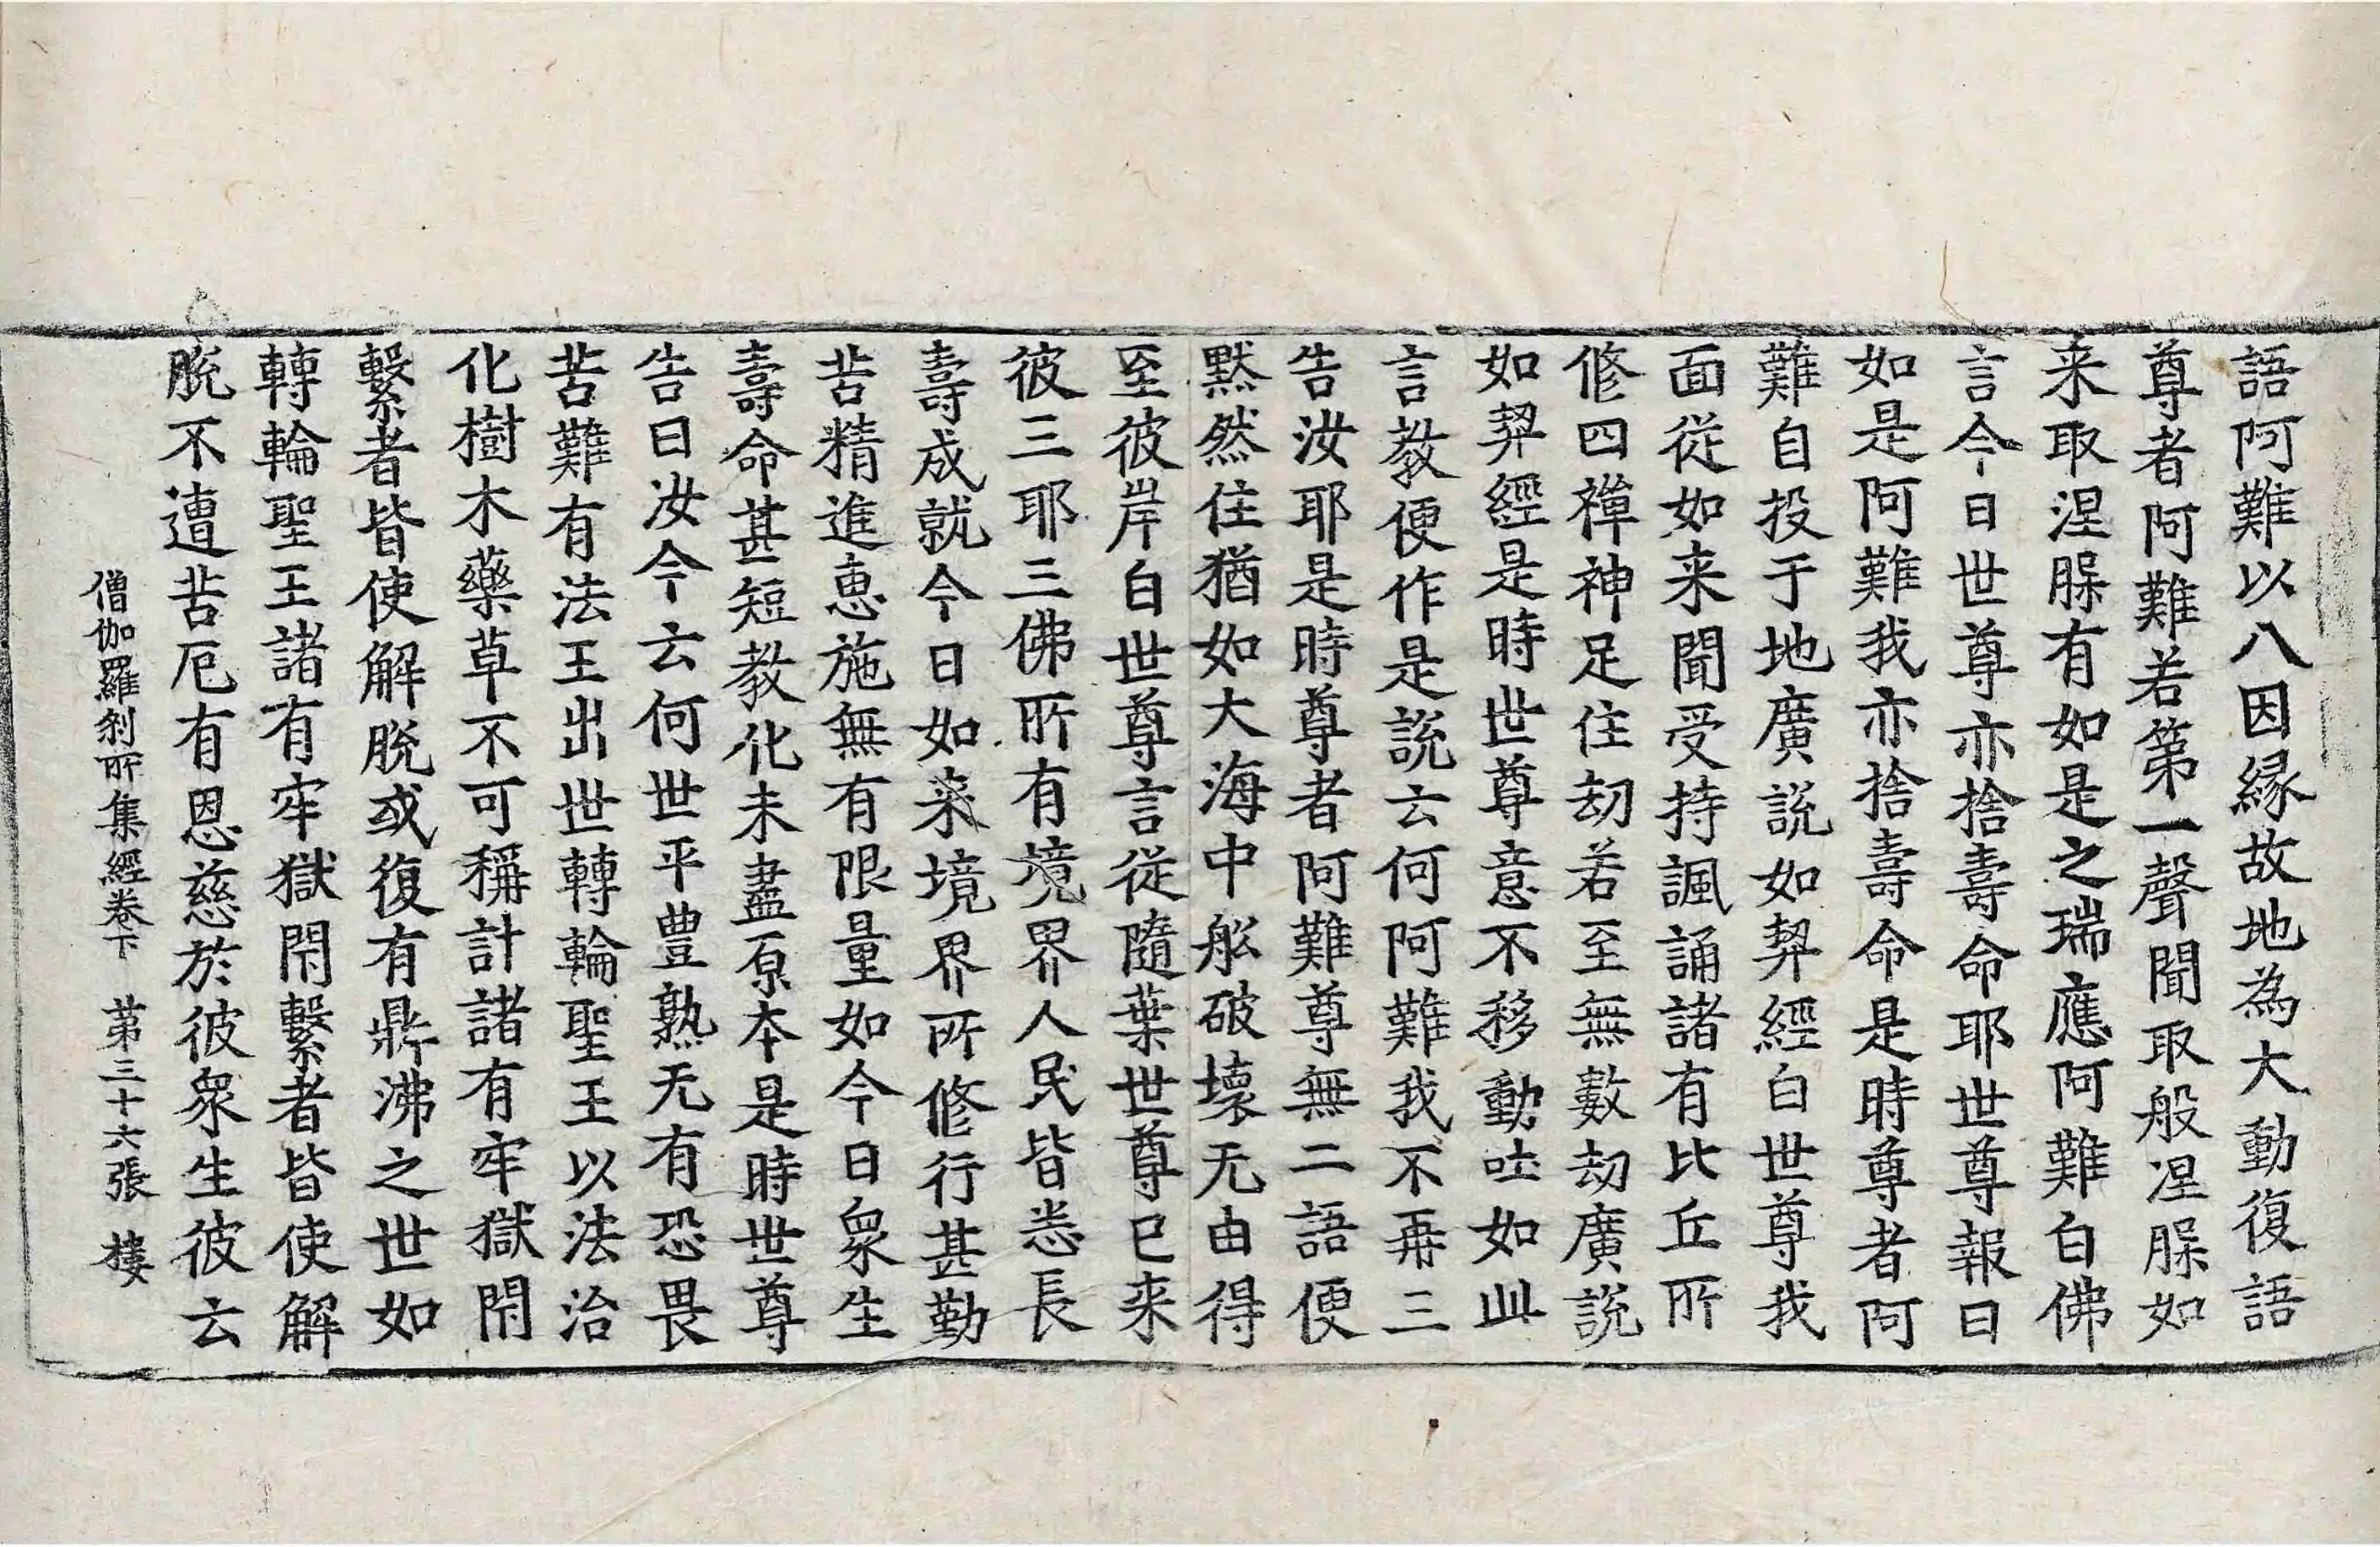 語阿難以八因縁故地為大動復語
尊者阿難若第一聲聞取般涅㬸如
来取涅㬸有如是之瑞應阿難白佛
言今日世尊亦捨壽命耶世尊報曰
如是阿難我亦捨壽命是時尊者阿
難自投于地廣說如契經白世尊我
面從如来聞受持諷誦諸有比丘所
修四禪神足住劫若至無數劫廣說
如契經是時世尊意不移動吐如此
言教便作是說云何阿難我不再三
告汝耶是時尊者阿難尊無二語便
默然住猶如大海中舩破壞无由得
至彼岸白世尊言從隨葉世尊已来
彼三耶三佛所有境界人民皆悉長
壽成就今日如来境界所修行甚勤
苦精進惠施無有限量如今日衆生
壽命甚短教化未盡原本是時世尊
告曰汝今云何世平豊熟无有恐畏
苦難有法王出世轉輪聖王以法治
化樹木藥草不可稱計諸有牢獄閇
繫者皆使解脫或復有鼎沸之世如
轉輪聖王諸有牢獄閇繫者皆使解
脫不遭苦厄有恩慈於彼衆生彼云
僧伽羅剎所集經卷下 第三十六張 樓